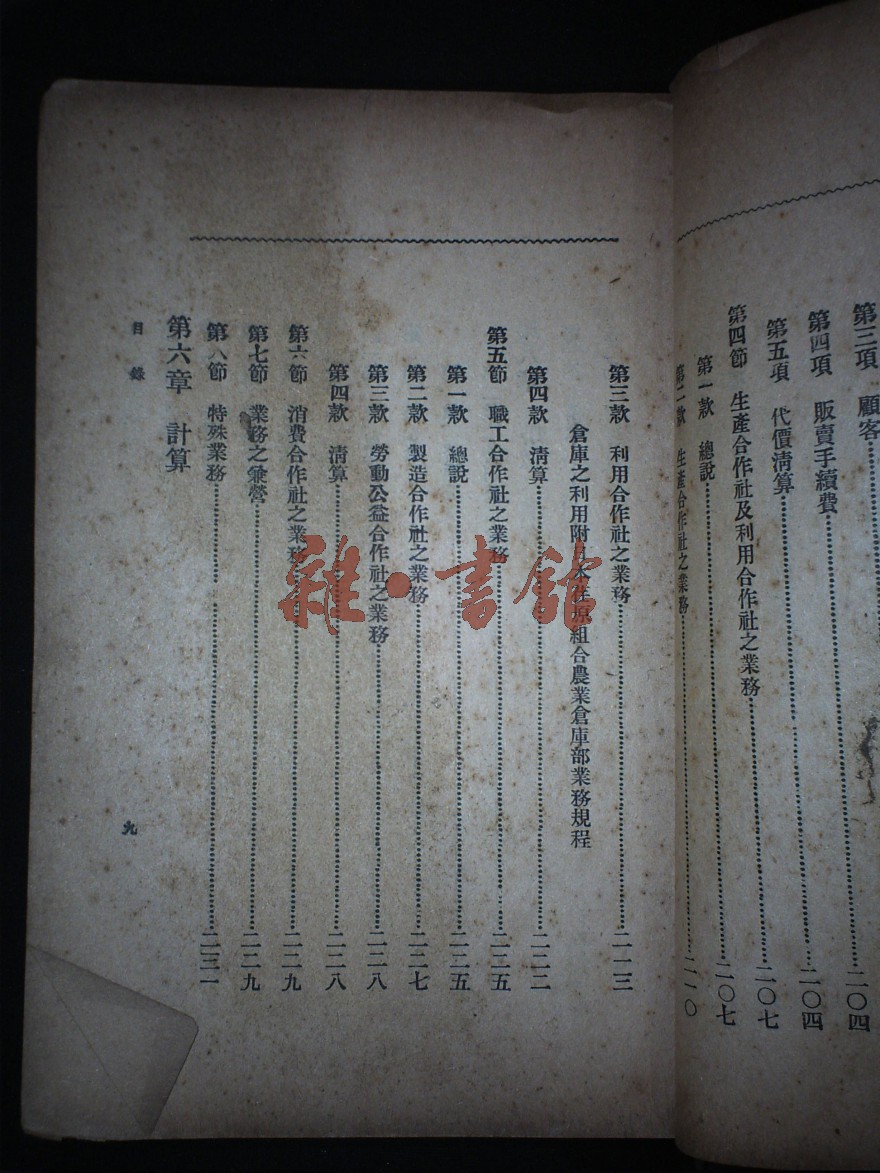 第三項　顧客……二〇四
第四項　販賣手續費……二〇四
第五項　代價清算……二〇七
第四節　生產合作社及利用合作社之業務……二〇七
第一款　總說……二一〇
第二款　生產合作社之業務
第三款　利用合作社之業務……二一三
倉庫之利用附 原組合農業倉庫部業務規程
第四款　清算……二二二
第五節　職工合作社之業務……二二五
第一款　總說……二二五
第二款　製造合作社之業務……二二七
第三款　勞動公益合作社之業務……二二八
第四款　清算……二二八
第六節　消費合作社之業務……二二九
第七節　業務之兼營……二二九
第八節　特殊業務……二三一
第六章　計算
目錄
九
雜·書館